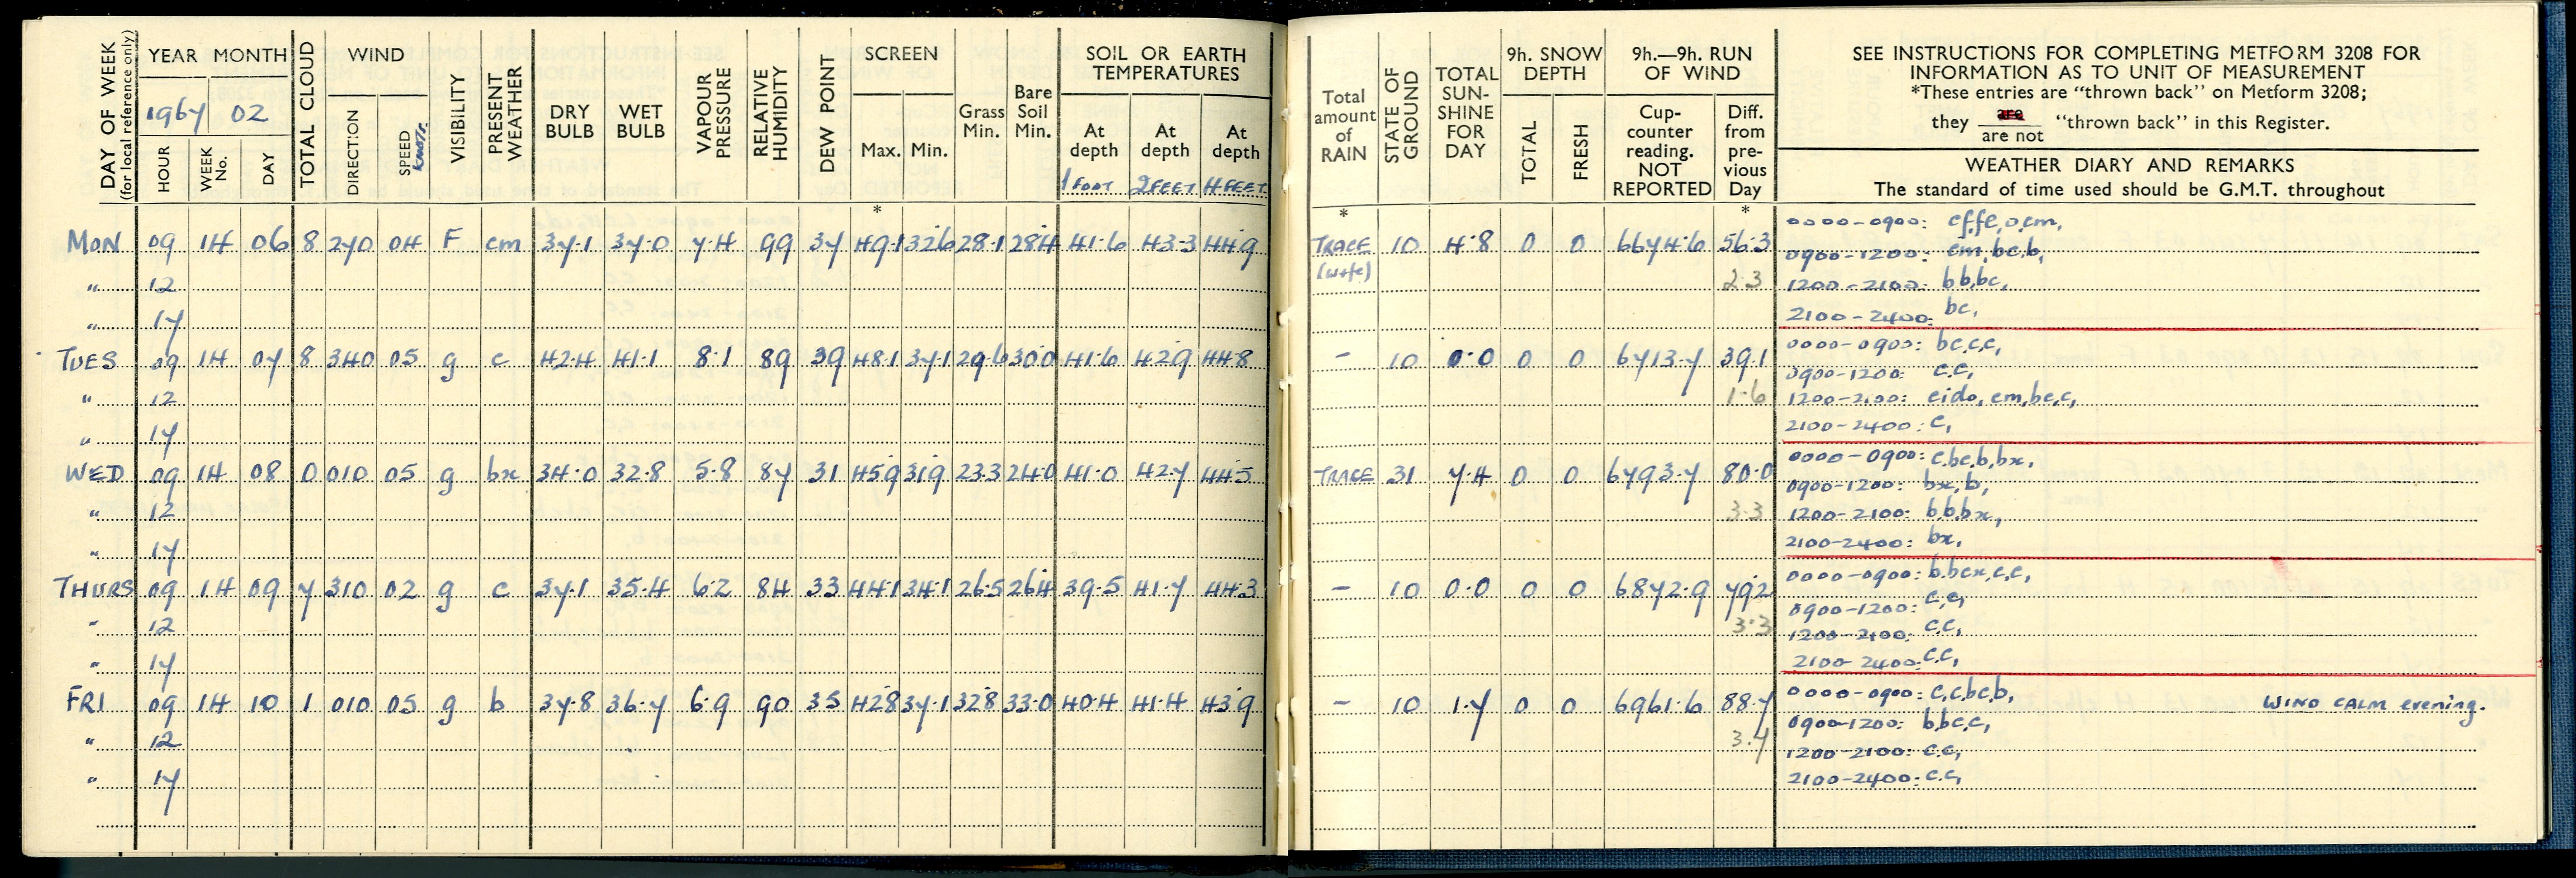 DAY OF WEEK (for local reference only)
YEAR MONTH
1967 02
HOUR WEEK No. DAY
TOTAL CLOUD
WIND
DIRECTION SPEED KNOTS
VISIBILITY
PRESENT WEATHER
DRY BULB
WET BULB
VAPOUR PRESSURE
RELATIVE HUMIDITY
DEW POINT
SCREEN
Max. Min.
*
Grass Min.
Bare Soil Min.
SOIL OR EARTH TEMPERATURES
At depth 1 FOOT
At depth 2 FEET
At depth 4 FEET
Total amount of RAIN
*
STATE OF GROUND
TOTAL SUN-SHINE FOR DAY
9h. SNOW DEPTH
TOTAL FRESH
9h.—9h. RUN OF WIND
Cup-counter reading. NOT REPORTED
Diff. from pre-vious Day
*
SEE INSTRUCTIONS FOR COMPLETING METFORM 3208 FOR
INFORMATION AS TO UNIT OF MEASUREMENT
*These entries are “thrown back” on Metform 3208;
they are / are not “thrown back” in this Register.
WEATHER DIARY AND REMARKS
The standard of time used should be G.M.T. throughout
MON 09 14 06 8 270 04 F cm 37.1 37.0 7.4 99 37 49.1 32.6 28.1 28.4 41.6 43.3 44.9 TRACE 10 4.8 0 0 6674.6 56.3
(w+fe)
2.3
" 12
" 17
0000-0900: cffe,o,cm,
0900-1200: cm,bc,b,
1200-2100: b,b,bc,
2100-2400: bc,
TUES 09 14 07 8 340 05 g c 42.4 41.1 8.1 89 39 48.1 37.1 29.6 30.0 41.6 42.9 44.8 - 10 0.0 0 0 6713.7 39.1
1.6
" 12
" 17
0000-0900: bc,c,c,
0900-1200: c,c,
1200-2100: cido, cm,bc,c,
2100-2400: c,
WED 09 14 08 0 010 05 g bx 34.0 32.8 5.8 87 31 45.9 31.9 23.3 24.0 41.0 42.7 44.5 TRACE 31 7.4 0 0 6793.7 80.0
3.3
" 12
" 17
0000-0900: c,bc,b,bx,
0900-1200: bx,b,
1200-2100: b,b,bx,
2100-2400: bx,
THURS 09 14 09 7 310 02 g c 37.1 35.4 6.2 84 33 44.1 34.1 26.5 26.4 39.5 41.7 44.3 - 10 0.0 0 0 6872.9 79.2
3.3
" 12
" 17
0000-0900: b,bcx,c,c,
0900-1200: c,c,
1200-2100: c,c,
2100-2400: c,c,
FRI 09 14 10 1 010 05 g b 37.8 36.7 6.9 90 35 42.8 37.1 32.8 33.0 40.4 41.4 43.9 - 10 1.7 0 0 6961.6 88.7
3.7
" 12
" 17
0000-0900: c,c,bc,b, WIND CALM evening.
0900-1200: b,bc,c,
1200-2100: c,c,
2100-2400: c,c,